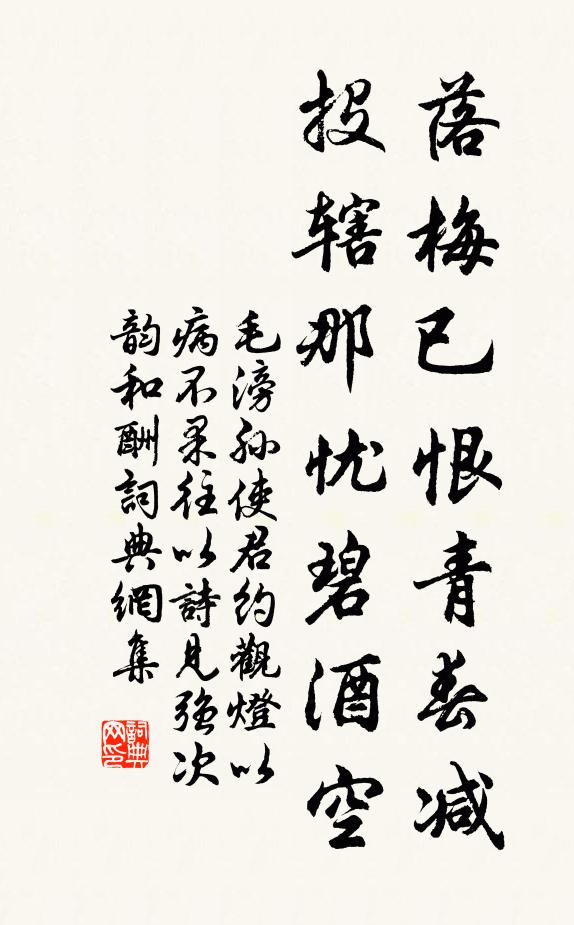 落梅已恨青春减
投辖那忧碧酒空
毛滂孙使君约觀燈以
病不果往以詩見强次
韵和酬詞典網集
詞典网印